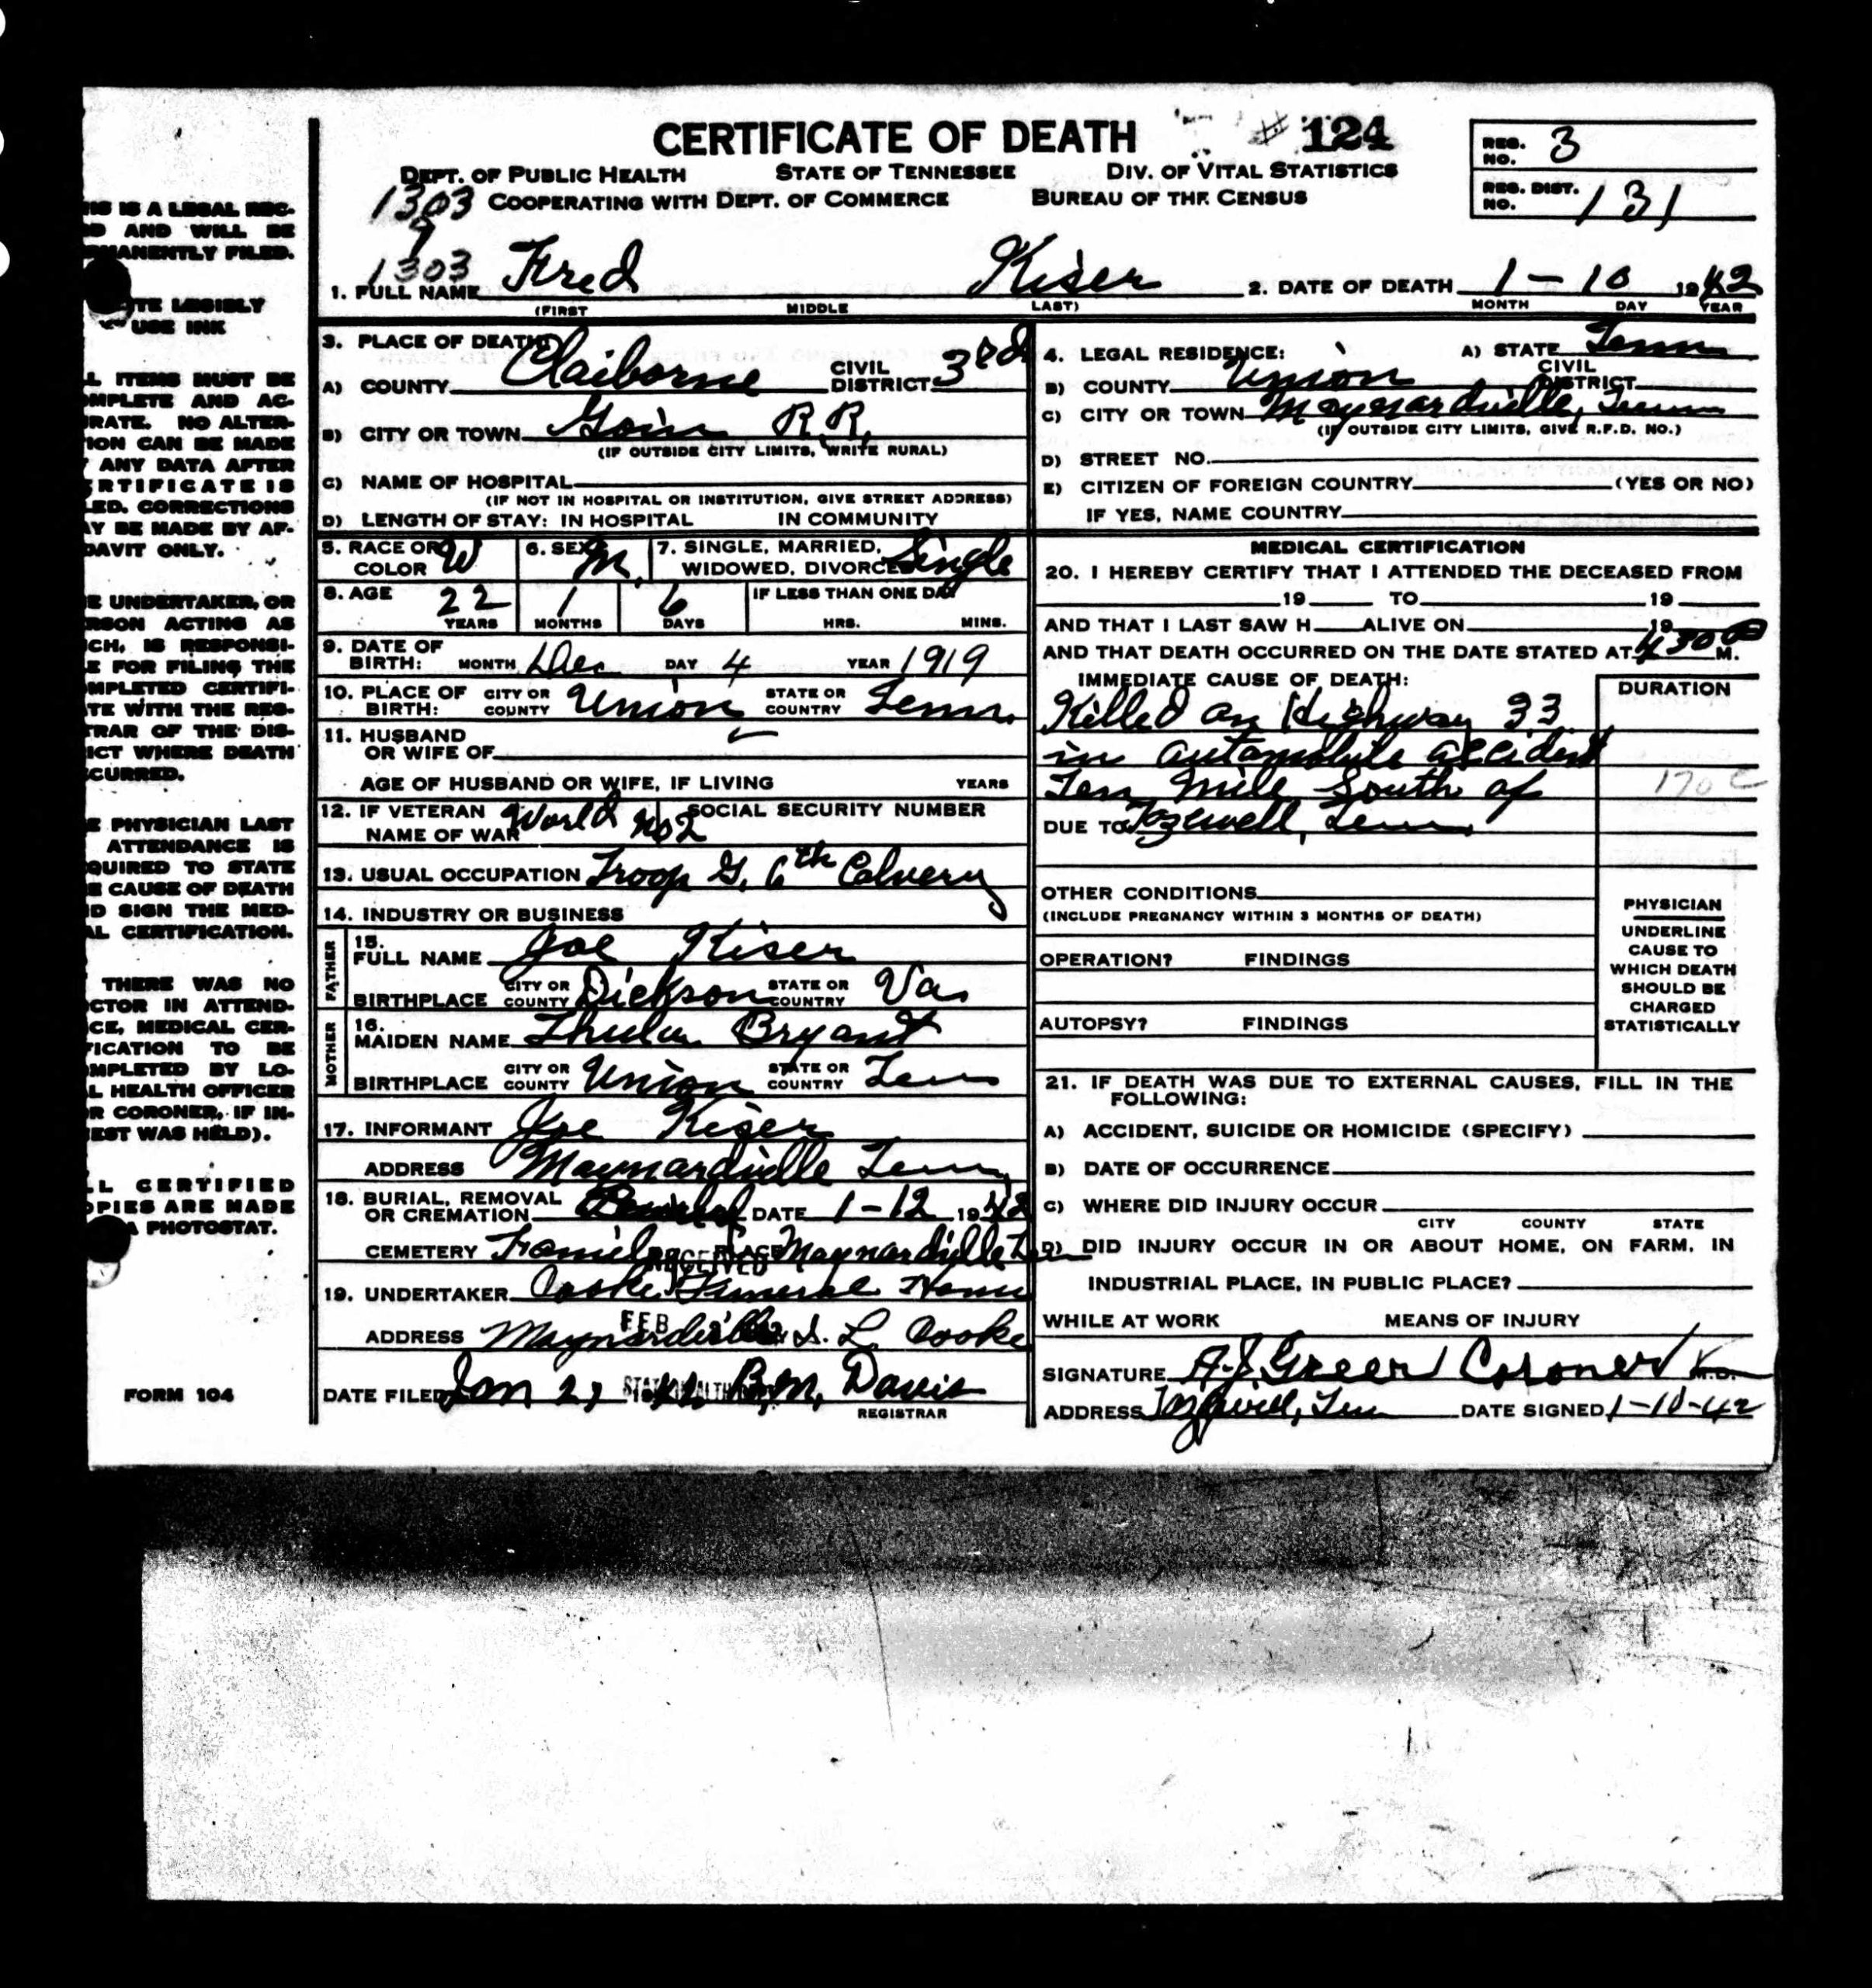 CERTIFICATE OF DEATH # 124
DEPT. OF PUBLIC HEALTH STATE OF TENNESSEE DIV. OF VITAL STATISTICS
1303 COOPERATING WITH DEPT. OF COMMERCE BUREAU OF THE CENSUS
9
1303
REG. NO. 3
REG. DIST. NO. 131
1. FULL NAME Fred Kiser 2. DATE OF DEATH 1 - 10 1942
(FIRST MIDDLE LAST) MONTH DAY YEAR
3. PLACE OF DEATH:
A) COUNTY Claiborne CIVIL DISTRICT 3rd
B) CITY OR TOWN Goin R.R.
(IF OUTSIDE CITY LIMITS, WRITE RURAL)
C) NAME OF HOSPITAL
(IF NOT IN HOSPITAL OR INSTITUTION, GIVE STREET ADDRESS)
D) LENGTH OF STAY: IN HOSPITAL IN COMMUNITY
4. LEGAL RESIDENCE: A) STATE Tenn
B) COUNTY Union CIVIL DISTRICT
C) CITY OR TOWN Maynardville, Tenn
(IF OUTSIDE CITY LIMITS, GIVE R.F.D. NO.)
D) STREET NO.
E) CITIZEN OF FOREIGN COUNTRY (YES OR NO)
IF YES, NAME COUNTRY
5. RACE OR COLOR W 6. SEX M. 7. SINGLE, MARRIED, WIDOWED, DIVORCED Single
8. AGE 22 YEARS 1 MONTHS 6 DAYS IF LESS THAN ONE DAY HRS. MINS.
9. DATE OF BIRTH: MONTH Dec DAY 4 YEAR 1919
10. PLACE OF BIRTH: CITY OR COUNTY Union STATE OR COUNTRY Tenn.
11. HUSBAND OR WIFE OF
AGE OF HUSBAND OR WIFE, IF LIVING YEARS
12. IF VETERAN NAME OF WAR World No 2 SOCIAL SECURITY NUMBER
13. USUAL OCCUPATION Troop G. 6th Calvery
14. INDUSTRY OR BUSINESS
FATHER
15. FULL NAME Joe Kiser
BIRTHPLACE CITY OR COUNTY Dickson STATE OR COUNTRY Va.
MOTHER
16. MAIDEN NAME Bryant
BIRTHPLACE CITY OR COUNTY Union STATE OR COUNTRY Tenn
17. INFORMANT Joe Kiser
ADDRESS Maynardville Tenn
18. BURIAL, REMOVAL OR CREMATION Burial DATE 1-12 1942
CEMETERY Family PLACE Maynardville Tenn
RECEIVED
19. UNDERTAKER Cooke Funeral Home
FEB
ADDRESS Maynardville S. L. Cooke
DATE FILED Jan 21 B.M. Davis
REGISTRAR
MEDICAL CERTIFICATION
20. I HEREBY CERTIFY THAT I ATTENDED THE DECEASED FROM
19 TO 19
AND THAT I LAST SAW H ALIVE ON 19
AND THAT DEATH OCCURRED ON THE DATE STATED AT 430 P M.
IMMEDIATE CAUSE OF DEATH: DURATION
Killed on Highway 33
in automobile accident
Ten mile South of 170 c
DUE TO Tazewell, Tenn.
OTHER CONDITIONS
(INCLUDE PREGNANCY WITHIN 3 MONTHS OF DEATH)
OPERATION? FINDINGS
AUTOPSY? FINDINGS
PHYSICIAN
UNDERLINE
CAUSE TO
WHICH DEATH
SHOULD BE
CHARGED
STATISTICALLY
21. IF DEATH WAS DUE TO EXTERNAL CAUSES, FILL IN THE
FOLLOWING:
A) ACCIDENT, SUICIDE OR HOMICIDE (SPECIFY)
B) DATE OF OCCURRENCE
C) WHERE DID INJURY OCCUR
CITY COUNTY STATE
D) DID INJURY OCCUR IN OR ABOUT HOME, ON FARM, IN
INDUSTRIAL PLACE, IN PUBLIC PLACE?
WHILE AT WORK MEANS OF INJURY
SIGNATURE A.J. Greer Coroner M.D.
ADDRESS Tazewell, Tenn DATE SIGNED 1-10-42
IS IS A LEGAL REC-
D AND WILL BE
MANENTLY FILED.
TE LEGIBLY
USE INK
L ITEMS MUST BE
MPLETE AND AC-
RATE. NO ALTER-
ION CAN BE MADE
ANY DATA AFTER
RTIFICATE IS
LED. CORRECTIONS
AY BE MADE BY AF-
DAVIT ONLY.
E UNDERTAKER, OR
RSON ACTING AS
CH, IS RESPONSI-
E FOR FILING THE
MPLETED CERTIFI-
TE WITH THE REG-
TRAR OF THE DIS-
ICT WHERE DEATH
CCURRED.
E PHYSICIAN LAST
ATTENDANCE IS
QUIRED TO STATE
E CAUSE OF DEATH
D SIGN THE MED-
AL CERTIFICATION.
THERE WAS NO
CTOR IN ATTEND-
CE, MEDICAL CER-
FICATION TO BE
MPLETED BY LO-
L HEALTH OFFICER
R CORONER, IF IN-
EST WAS HELD).
LL CERTIFIED
OPIES ARE MADE
A PHOTOSTAT.
FORM 104